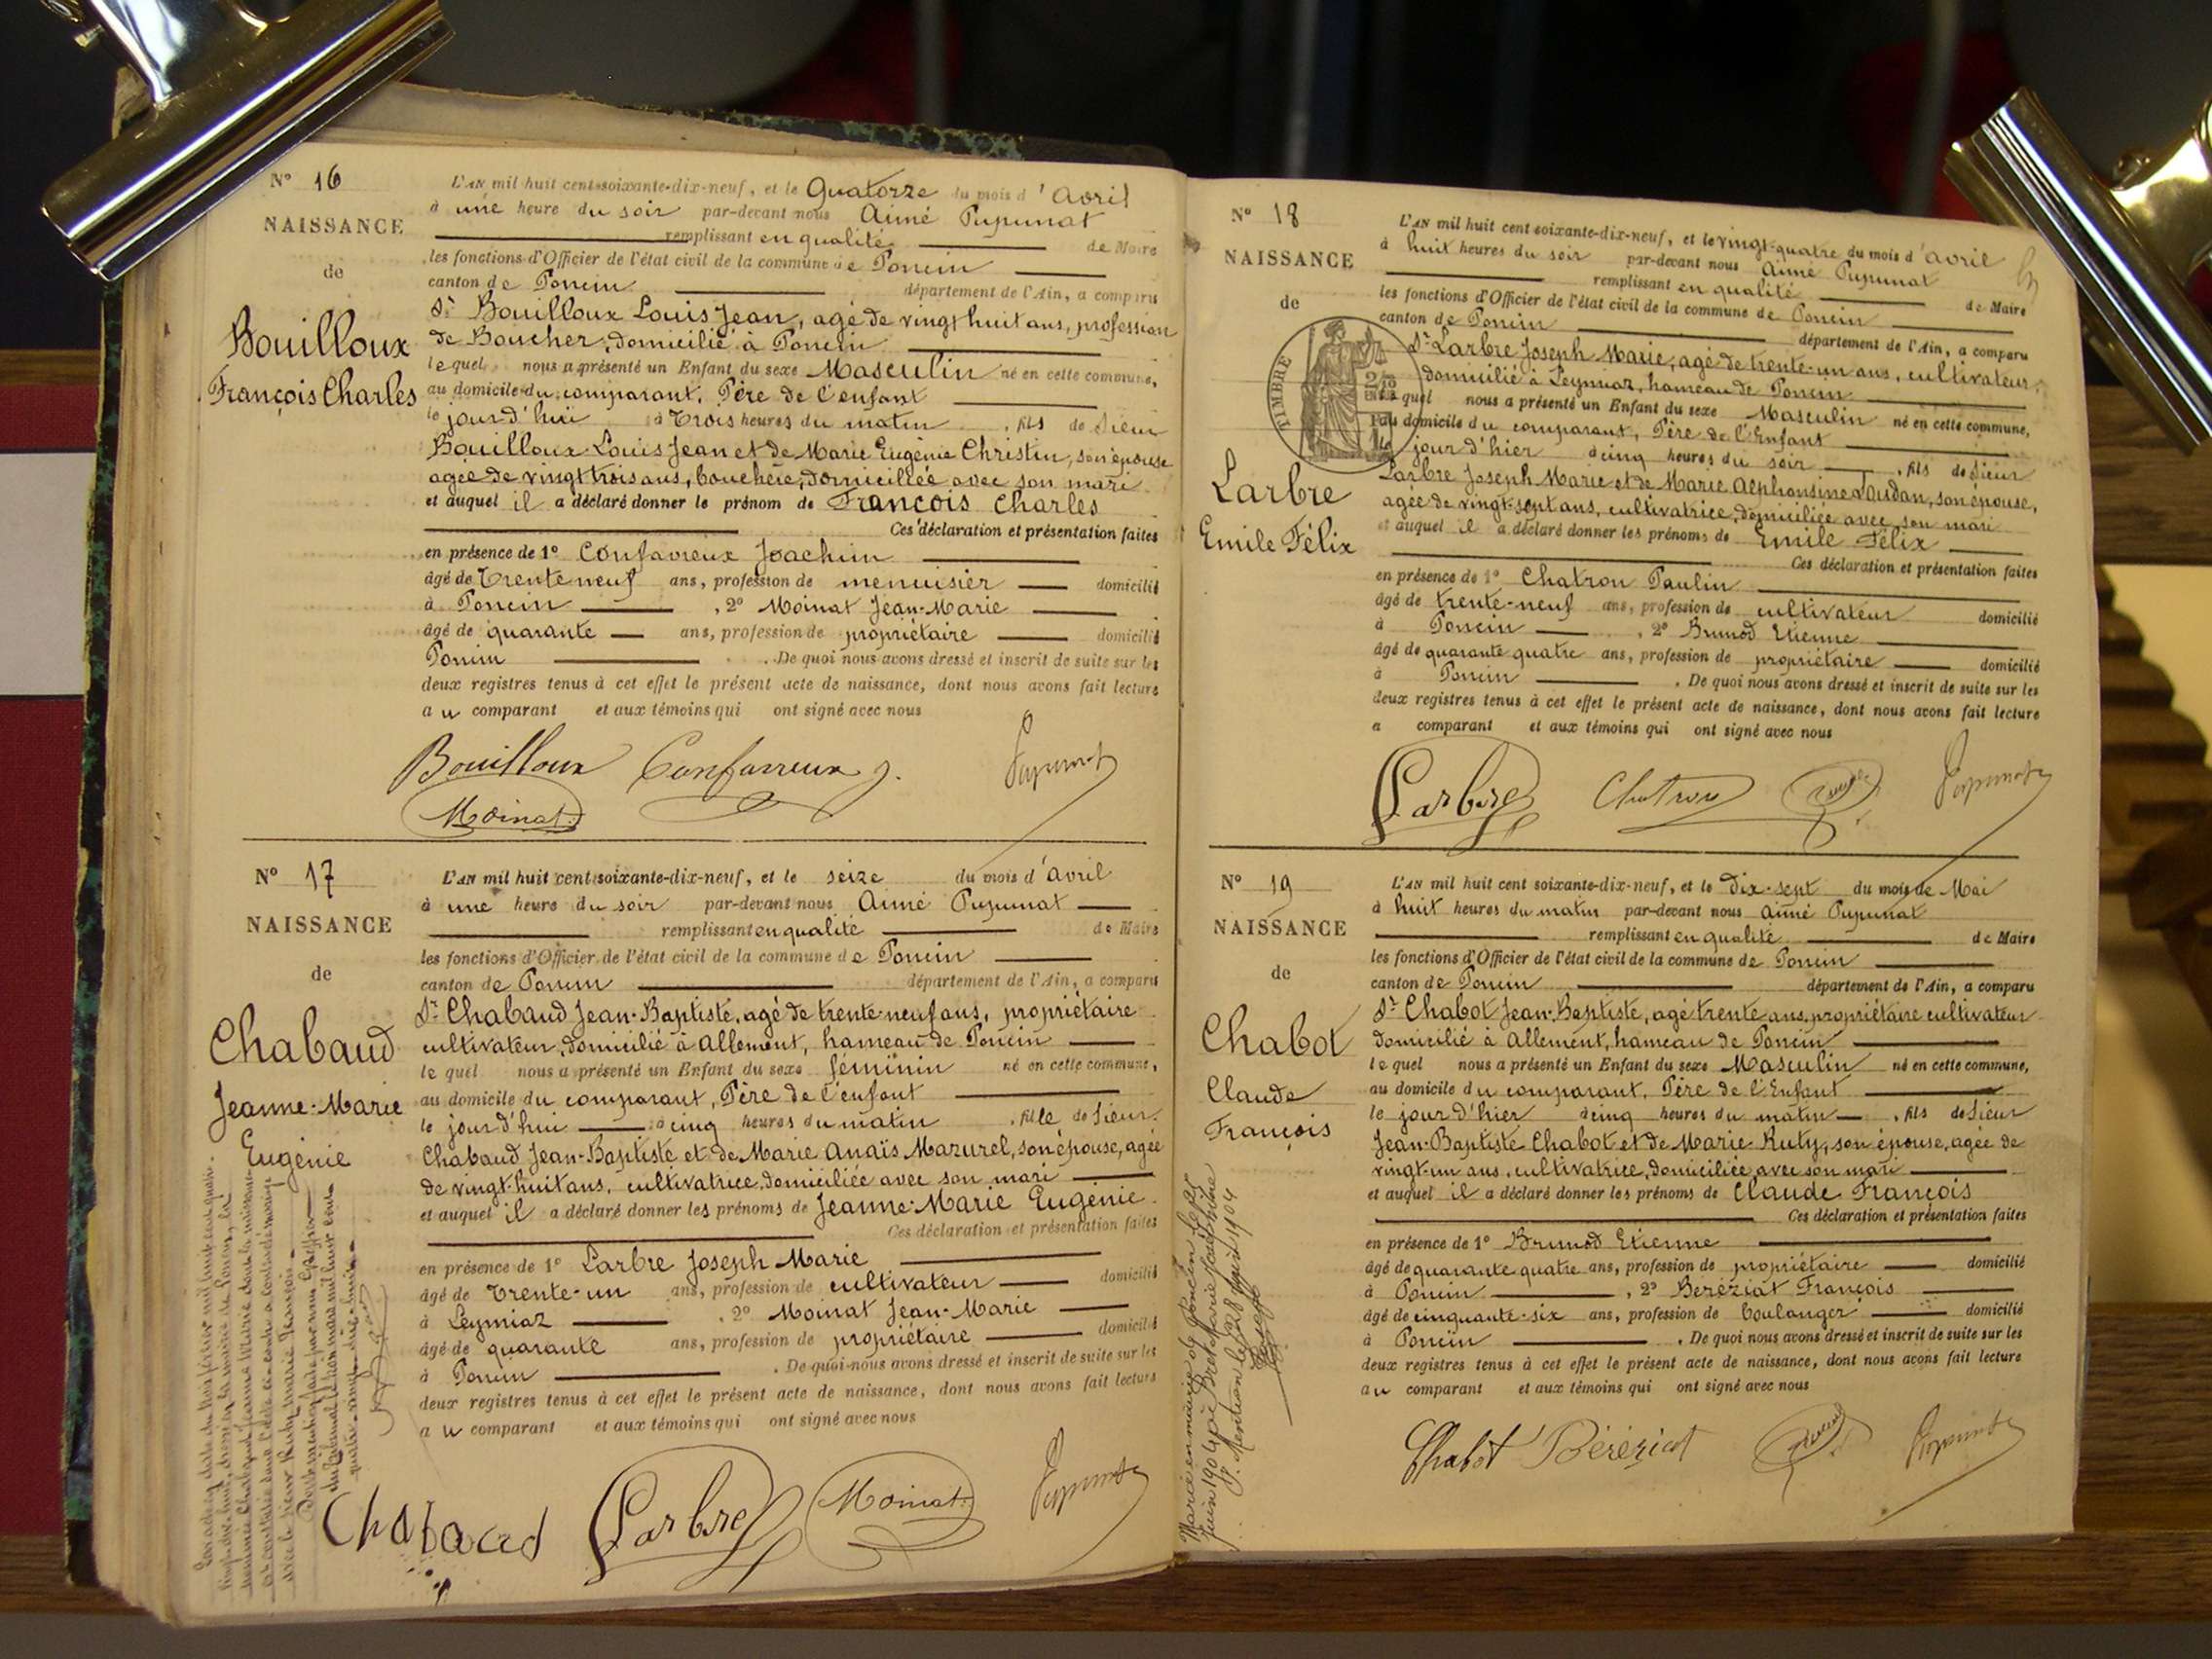 N° 16
NAISSANCE
de
Bouilloux
François Charles
L'AN mil huit cent soixante-dix-neuf, et le Quatorze du mois d'Avril
à une heure du soir par-devant nous Aimé Pupunat
remplissant en qualité de Maire
les fonctions d'Officier de l'état civil de la commune de Poncin
canton de Poncin département de l'Ain, a comparu
Sr Bouilloux Louis Jean, agé de vingt huit ans, profession
de Boucher, domicilié à Poncin
lequel nous a présenté un Enfant du sexe Masculin né en cette commune,
au domicile du comparant, Père de l'enfant
le jour d'hui à Trois heures du matin, fils de Sieur
Bouilloux Louis Jean et de Marie Eugénie Christin, son épouse
agée de vingt trois ans, bouchère, domiciliée avec son mari
et auquel il a déclaré donner le prénom de François Charles
Ces déclaration et présentation faites
en présence de 1° Confavreux Joachim
âgé de Trente neuf ans, profession de menuisier domicilié
à Poncin, 2° Moinat Jean-Marie
âgé de quarante ans, profession de propriétaire domicilié
Poncin. De quoi nous avons dressé et inscrit de suite sur les
deux registres tenus à cet effet le présent acte de naissance, dont nous avons fait lecture
au comparant et aux témoins qui ont signé avec nous
Bouilloux Confavreux J. Pupunat
Moinat
N° 17
NAISSANCE
de
Chabaud
Jeanne-Marie
Eugénie
L'AN mil huit cent soixante-dix-neuf, et le seize du mois d'avril
à une heure du soir par-devant nous Aimé Pupunat
remplissant en qualité de Maire
les fonctions d'Officier de l'état civil de la commune de Poncin
canton de Poncin département de l'Ain, a comparu
Sr Chabaud Jean-Baptiste, agé de trente-neuf ans, propriétaire
cultivateur, domicilié à Allement, hameau de Poncin
lequel nous a présenté un Enfant du sexe féminin né en cette commune,
au domicile du comparant, Père de l'enfant
le jour d'hui à cinq heures du matin, fille de Sieur
Chabaud Jean-Baptiste et de Marie Anaïs Mazurel, son épouse, agée
de vingt-huit ans, cultivatrice, domiciliée avec son mari
et auquel il a déclaré donner les prénoms de Jeanne-Marie Eugénie
Ces déclaration et présentation faites
en présence de 1° Larbre Joseph Marie
âgé de Trente-un ans, profession de cultivateur domicilié
à Leymiaz, 2° Moinat Jean-Marie
âgé de quarante ans, profession de propriétaire domicilié
à Poncin. De quoi nous avons dressé et inscrit de suite sur les
deux registres tenus à cet effet le présent acte de naissance, dont nous avons fait lecture
au comparant et aux témoins qui ont signé avec nous
Chabaud Larbre Moinat Pupunat
N° 18
NAISSANCE
de
TIMBRE
Larbre
Emile Félix
L'AN mil huit cent soixante-dix-neuf, et le vingt-quatre du mois d'avril
à huit heures du soir par-devant nous Aimé Pupunat
remplissant en qualité de Maire
les fonctions d'Officier de l'état civil de la commune de Poncin
canton de Poncin département de l'Ain, a comparu
Sr Larbre Joseph Marie, agé de trente-un ans, cultivateur,
domicilié à Leymiaz, hameau de Poncin
lequel nous a présenté un Enfant du sexe Masculin né en cette commune,
au domicile du comparant, Père de l'Enfant
le jour d'hier à cinq heures du soir, fils de Sieur
Larbre Joseph Marie et de Marie Alphonsine Jaudan, son épouse,
agée de vingt-sept ans, cultivatrice, domiciliée avec son mari
et auquel il a déclaré donner les prénoms de Emile Félix
Ces déclaration et présentation faites
en présence de 1° Chatron Paulin
âgé de trente-neuf ans, profession de cultivateur domicilié
à Poncin, 2° Brunod Etienne
âgé de quarante quatre ans, profession de propriétaire domicilié
à Poncin. De quoi nous avons dressé et inscrit de suite sur les
deux registres tenus à cet effet le présent acte de naissance, dont nous avons fait lecture
a comparant et aux témoins qui ont signé avec nous
Larbre Chatron Pupunat
N° 19
NAISSANCE
de
Chabot
Claude
François
L'AN mil huit cent soixante-dix-neuf, et le Dix-sept du mois de Mai
à huit heures du matin par-devant nous aimé Pupunat
remplissant en qualité de Maire
les fonctions d'Officier de l'état civil de la commune de Poncin
canton de Poncin département de l'Ain, a comparu
Sr Chabot Jean-Baptiste, agé trente ans, propriétaire cultivateur
domicilié à Allement, hameau de Poncin
lequel nous a présenté un Enfant du sexe Masculin né en cette commune,
au domicile du comparant, Père de l'Enfant
le jour d'hier à cinq heures du matin, fils de Sieur
Jean-Baptiste Chabot et de Marie Ruty, son épouse, agée de
vingt-un ans, cultivatrice, domiciliée avec son mari
et auquel il a déclaré donner les prénoms de Claude François
Ces déclaration et présentation faites
en présence de 1° Brunod Etienne
âgé de quarante quatre ans, profession de propriétaire domicilié
à Poncin, 2° Béréziat François
âgé de cinquante-six ans, profession de boulanger domicilié
à Poncin. De quoi nous avons dressé et inscrit de suite sur les
deux registres tenus à cet effet le présent acte de naissance, dont nous avons fait lecture
au comparant et aux témoins qui ont signé avec nous
Chabot Béréziat Pupunat